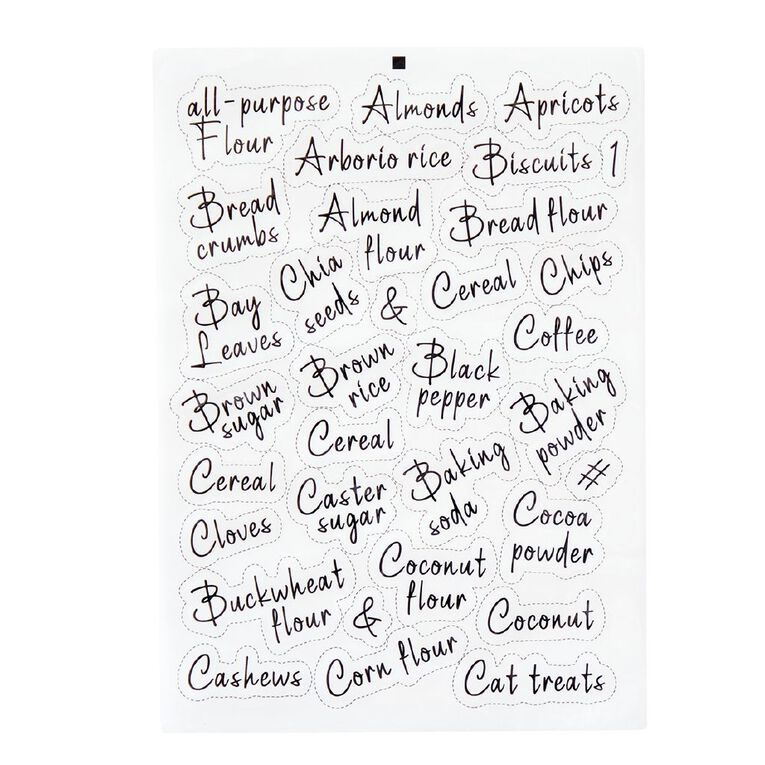 all-purpose
Flour
Almonds
Apricots
Arborio rice
Biscuits
1
Bread
crumbs
Almond
flour
Bread flour
Bay
Leaves
Chia
seeds
&
Cereal
Chips
Coffee
Brown
sugar
Brown
rice
Black
pepper
Baking
powder
Cereal
Cereal
Caster
sugar
Baking
soda
#
Cloves
Cocoa
powder
Buckwheat
flour
&
Coconut
flour
Coconut
Cashews
Corn flour
Cat treats